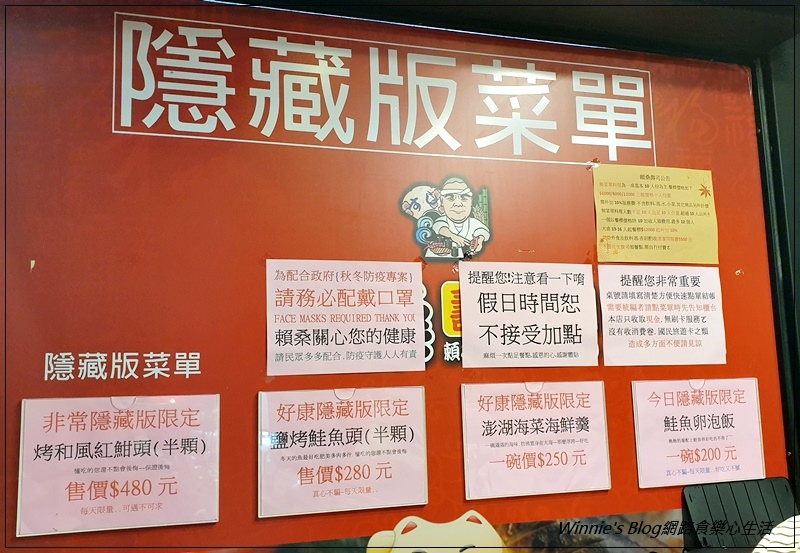 隱藏版菜單
賴桑壽司公告
為配合政府(秋冬防疫專案)
請務必配戴口罩
FACE MASKS REQUIRED THANK YOU
賴桑關心您的健康
請民眾多多配合,防疫守護人人有責
提醒您!注意看一下唷
假日時間恕
不接受加點
麻煩一次點足餐點,感恩的心,感謝體諒
提醒您非常重要
桌號請填寫清楚方便快速點單結帳
需要統編者請點菜單時先告知櫃台
本店只收取現金.無刷卡服務ㄛ
沒有收消費卷.國民旅遊卡之類
造成多方面不便請見諒
賴
隱藏版菜單
非常隱藏版限定
烤和風紅魽頭(半顆)
懂吃的您還不點會後悔---保證後悔
售價$480 元
每天限量..可遇不可求
好康隱藏版限定
鹽烤鮭魚頭(半顆)
冬天的魚最好吃肥美多肉多汁.懂吃的您還不點會後悔
售價$280 元
真心不騙-每天限量..
好康隱藏版限定
澎湖海菜海鮮羹
一碗$250 元
真心不騙-每天限量..
今日隱藏版限定
鮭魚卵泡飯
一碗$200 元
真心不騙-每天限量..好吃又不膩
Winnie's Blog網路食樂心生活